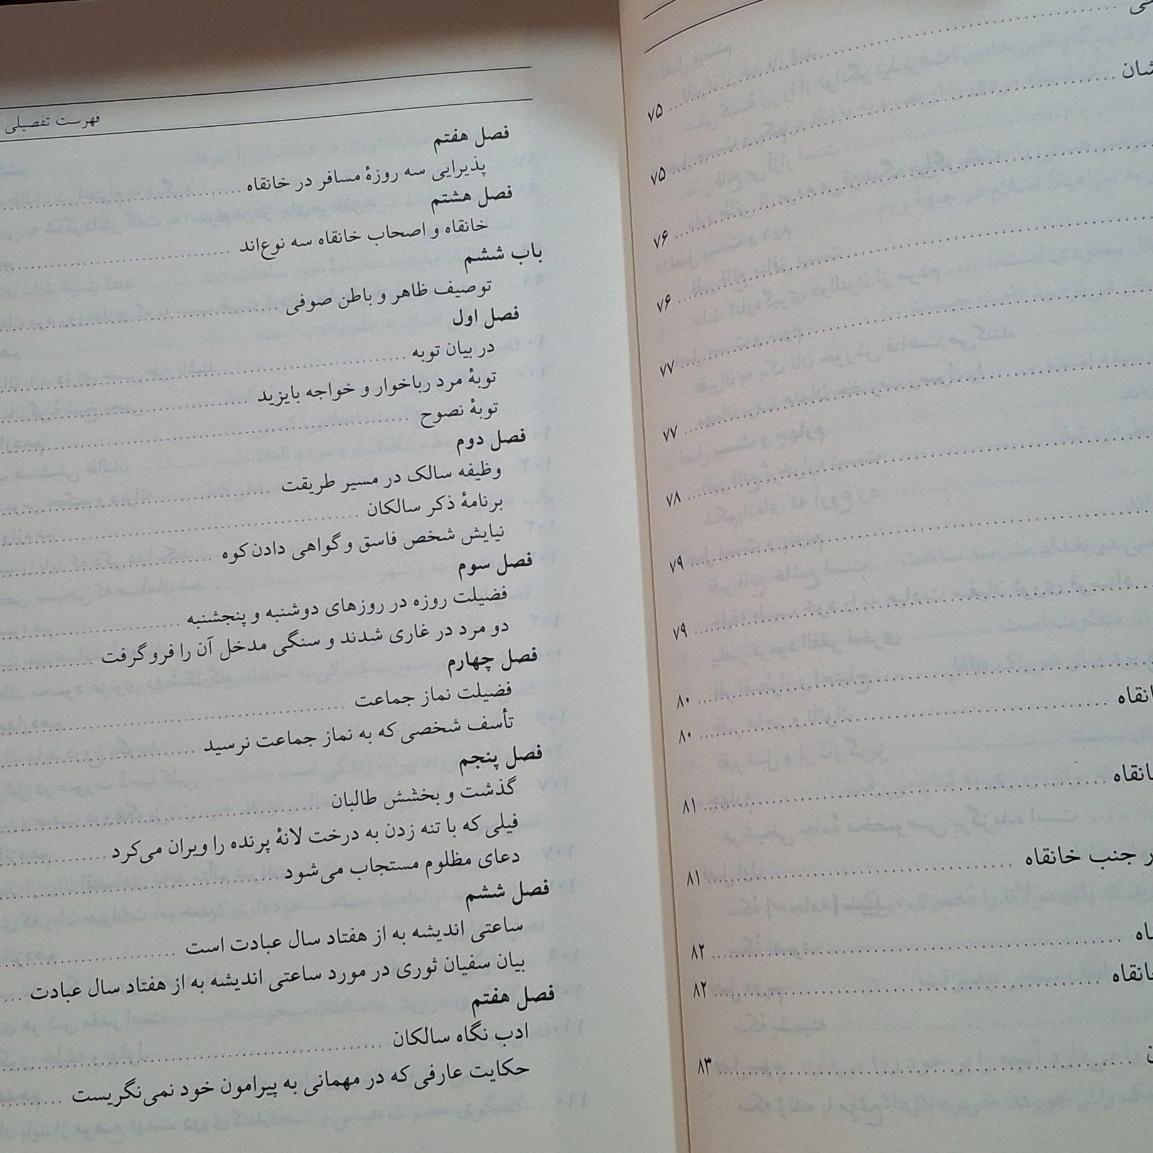 فهرست تفصیلی
فصل هفتم
پذیرایی سه روزهٔ مسافر در خانقاه
فصل هشتم
خانقاه و اصحاب خانقاه سه نوع‌اند
باب ششم
توصیف ظاهر و باطن صوفی
فصل اول
در بیان توبه
توبهٔ مرد رباخوار و خواجه بایزید
توبهٔ نصوح
فصل دوم
وظیفه سالک در مسیر طریقت
برنامهٔ ذکر سالکان
نیایش شخص فاسق و گواهی دادن کوه
فصل سوم
فضیلت روزه در روزهای دوشنبه و پنجشنبه
دو مرد در غاری شدند و سنگی مدخل آن را فروگرفت
فصل چهارم
فضیلت نماز جماعت
تأسف شخصی که به نماز جماعت نرسید
فصل پنجم
گذشت و بخشش طالبان
فیلی که با تنه زدن به درخت لانهٔ پرنده را ویران می‌کرد
دعای مظلوم مستجاب می‌شود
فصل ششم
ساعتی اندیشه به از هفتاد سال عبادت است
بیان سفیان ثوری در مورد ساعتی اندیشه به از هفتاد سال عبادت
فصل هفتم
ادب نگاه سالکان
حکایت عارفی که در مهمانی به پیرامون خود نمی‌نگریست
۷۵
۷۵
۷۶
۷۶
۷۷
۷۷
۷۸
۷۹
۷۹
۸۰
۸۰
۸۱
ر جنب خانقاه ۸۱
۸۲
۸۲
۸۳